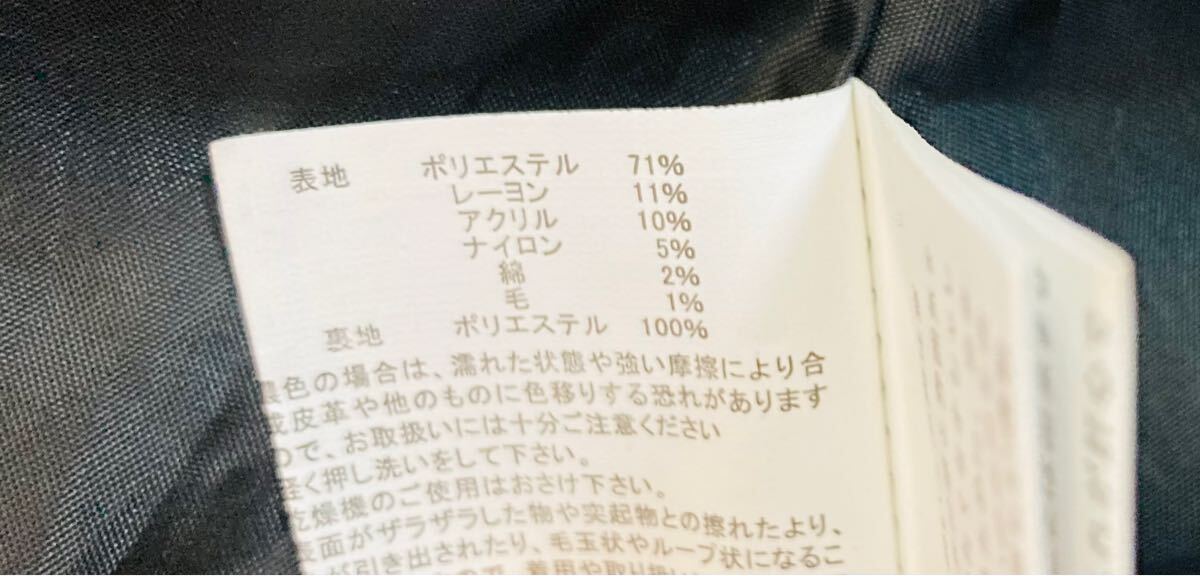 表地 ポリエステル 71%
レーヨン 11%
アクリル 10%
ナイロン 5%
綿 2%
毛 1%
裏地 ポリエステル 100%
濃色の場合は、濡れた状態や強い摩擦により合
成皮革や他のものに色移りする恐れがあります
ので、お取扱いには十分ご注意ください
軽く押し洗いをして下さい。
乾燥機のご使用はおさけ下さい。
表面がザラザラした物や突起物との擦れたより、
が引き出されたり、毛玉状やループ状になるこ
ので、着用や取り扱い